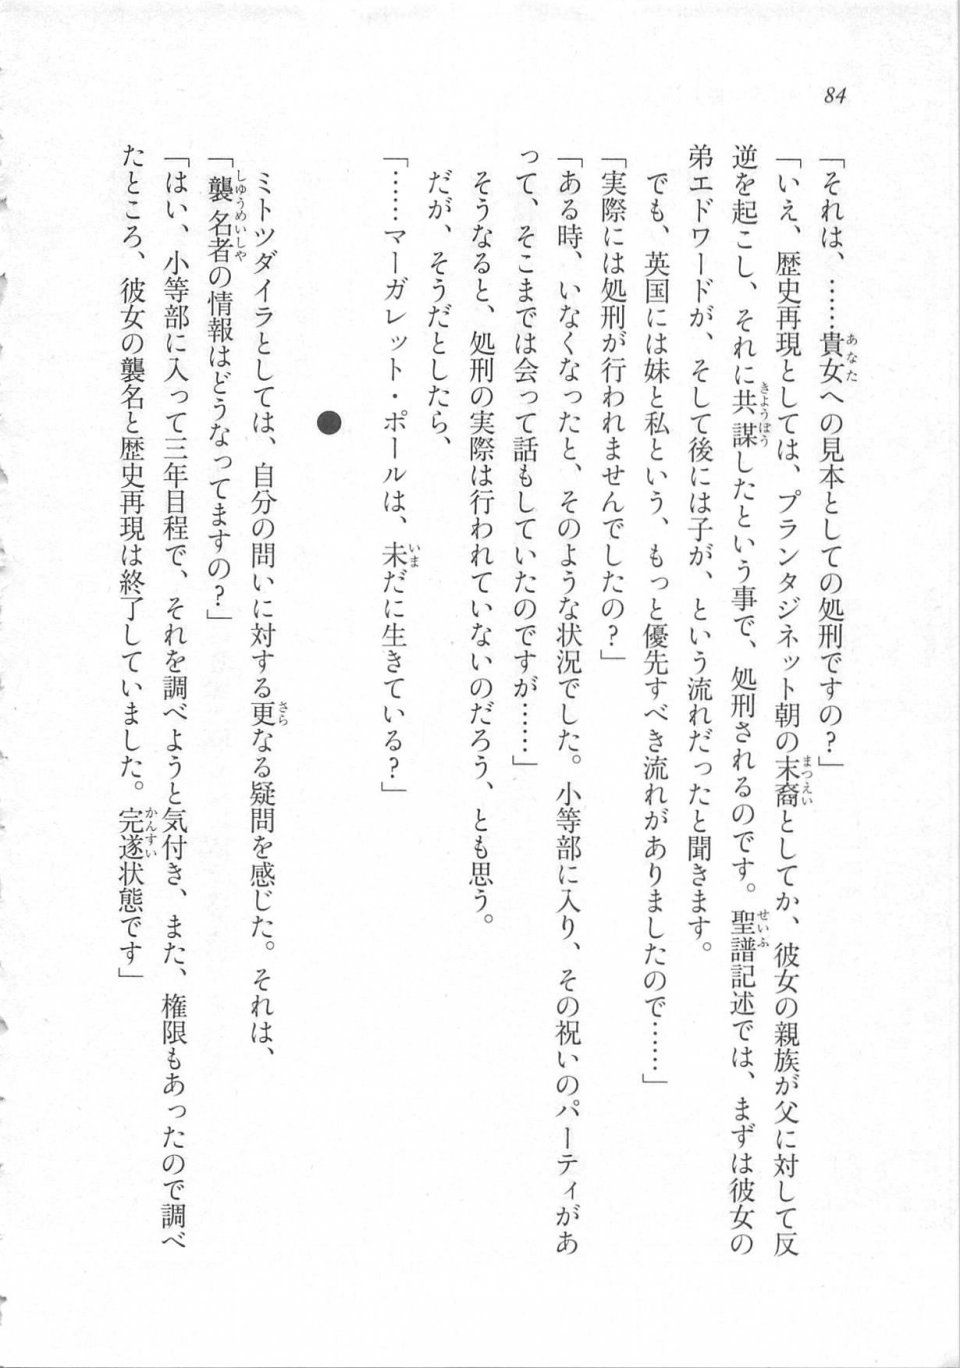 84
「それは、……貴女への見本としての処刑ですの?」
「いえ、歴史再現としては、プランタジネット朝の末裔としてか、彼女の親族が父に対して反
逆を起こし、それに共謀したという事で、処刑されるのです。聖譜記述では、まずは彼女の
弟エドワードが、そして後には子が、という流れだったと聞きます。
でも、英国には妹と私という、もっと優先すべき流れがありましたので……」
「実際には処刑が行われませんでしたの?」
「ある時、いなくなったと、そのような状況でした。小等部に入り、その祝いのパーティがあ
って、そこまでは会って話もしていたのですが……」
そうなると、処刑の実際は行われていないのだろう、とも思う。
だが、そうだとしたら、
「……マーガレット・ポールは、未だに生きている?」
●
ミトツダイラとしては、自分の問いに対する更なる疑問を感じた。それは、
「襲名者の情報はどうなってますの?」
「はい、小等部に入って三年目程で、それを調べようと気付き、また、権限もあったので調べ
たところ、彼女の襲名と歴史再現は終了していました。完遂状態です」